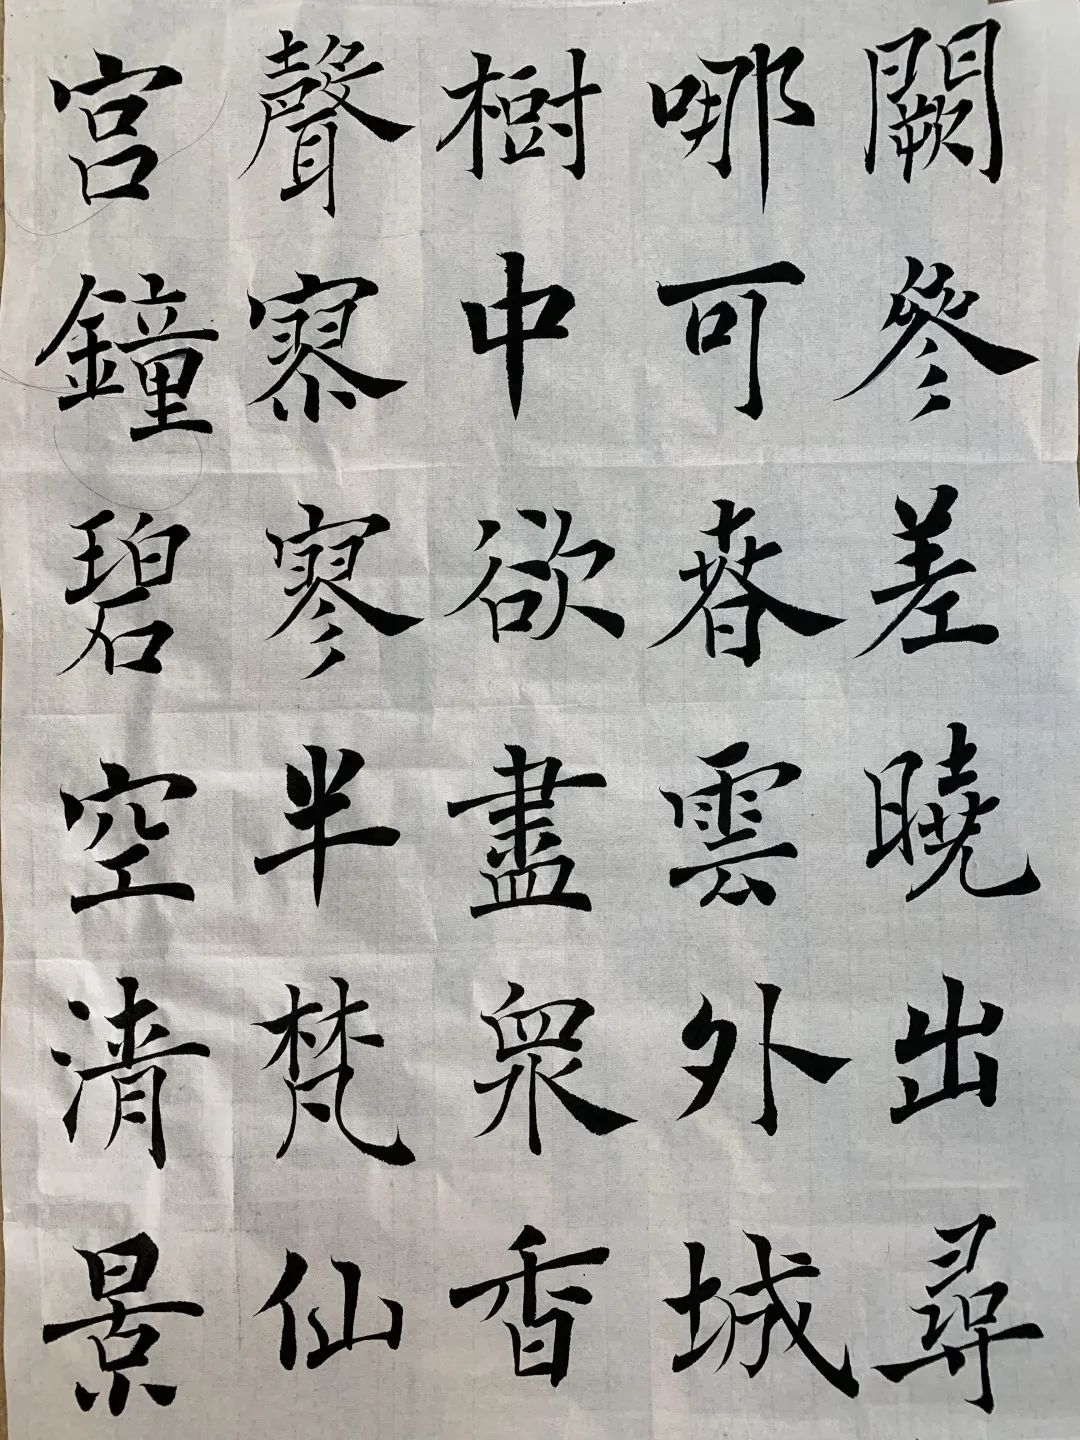 闕參差曉出尋
哪可春雲外城
樹中欲盡眾香
聲寥寥半梵仙
宮鐘碧空清景